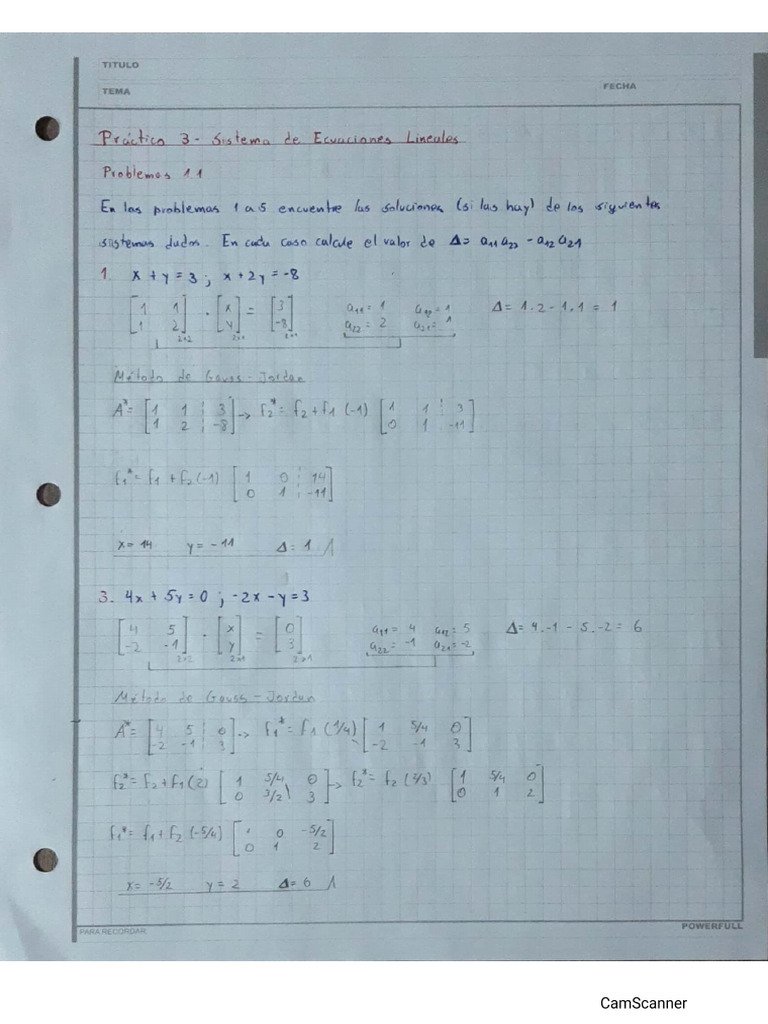 TITULO
TEMA FECHA
Práctica 3 - Sistema de Ecuaciones Lineales
Problemas 1.1
En los problemas 1 a 5 encuentre las soluciones (si las hay) de los siguientes
sistemas dados. En cada caso calcule el valor de Δ= a₁₁a₂₂ - a₁₂a₂₁
1. x + y = 3 ; x + 2y = -8
[1 1; 1 2]₂ₓ₂ · [x; y]₂ₓ₁ = [3; -8]₂ₓ₁ a₁₁ = 1 a₁₂ = 1 a₂₂ = 2 a₂₁ = 1 Δ= 1.2 - 1.1 = 1
Método de Gauss - Jordan
A* = [1 1 ¦ 3; 1 2 ¦ -8] → f₂* = f₂ + f₁ (-1) [1 1 ¦ 3; 0 1 ¦ -11]
f₁* = f₁ + f₂ (-1) [1 0 ¦ 14; 0 1 ¦ -11]
x= 14 y = -11 Δ= 1
3. 4x + 5y = 0 ; -2x - y = 3
[4 5; -2 -1]₂ₓ₂ · [x; y]₂ₓ₁ = [0; 3]₂ₓ₁ a₁₁ = 4 a₁₂ = 5 a₂₂ = -1 a₂₁ = -2 Δ= 4.-1 - 5.-2 = 6
Método de Gauss - Jordan
A* = [4 5 ¦ 0; -2 -1 ¦ 3] → f₁* = f₁ (1/4) [1 5/4 0; -2 -1 3]
f₂* = f₂ + f₁ (2) [1 5/4 0; 0 3/2 3] → f₂* = f₂ (2/3) [1 5/4 0; 0 1 2]
f₁* = f₁ + f₂ (-5/4) [1 0 -5/2; 0 1 2]
x= -5/2 y = 2 Δ= 6
PARA RECORDAR POWERFULL
CamScanner